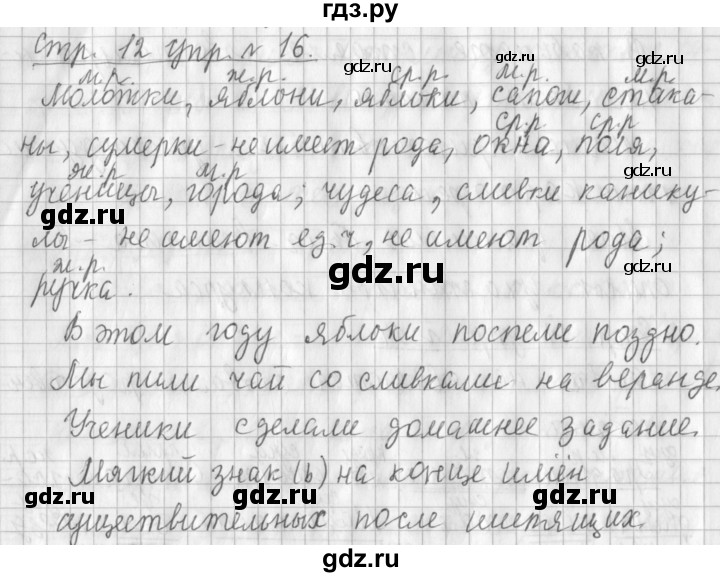 гдз.ру
Стр. 12 упр. № 16.
м.р. ж.р. ср.р. м.р. м.р.
Молотки, яблони, яблоки, сапоги, стака-
ср.р ср.р
ны, сумерки - не имеет рода, окна, поля,
ж.р м.р
ученицы, города; чудеса, сливки канику-
лы - не имеют ед.ч, не имеют рода;
ж.р.
ручка.
В этом году яблоки поспели поздно.
Мы пили чай со сливками на веранде.
Ученики сделали домашнее задание.
Мягкий знак (ь) на конце имён
существительных после шипящих.
gdz.ru
gdz.ru
gdz.ru
gdz.ru
gdz.ru
gdz.ru
gdz.ru
gdz.ru
gdz.ru
gdz.ru
gdz.ru
gdz.ru
gdz.ru
гдз.ру